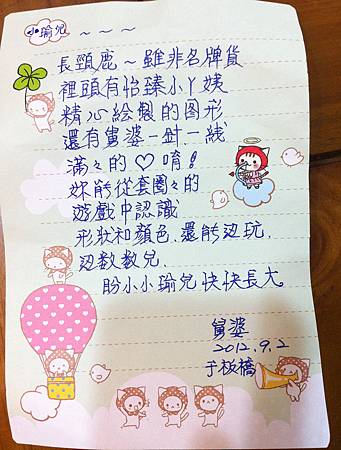 小瑜兒~~~
長頸鹿~雖非名牌貨
裡頭有怡臻小丫姨
精心绘製的图形
還有舅婆一針一线
滿々的♡唷!
妹能從套圈々的
遊戲中認識
形狀和顏色.還能边玩,
边数数兒.
盼小小瑜兒快快長大.
舅婆
2012.9.2
于板橋